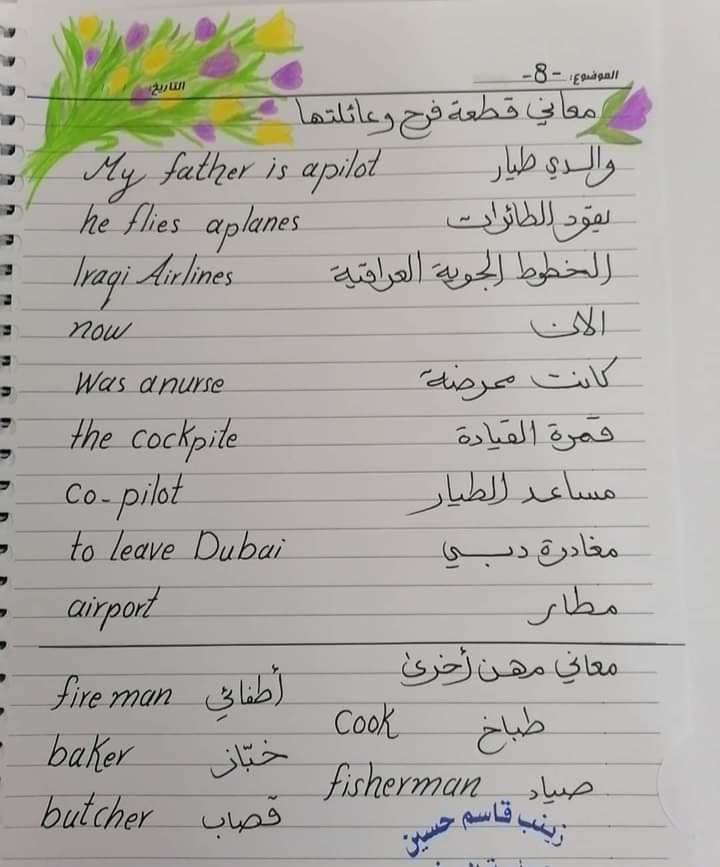 الموضوع: -8-
التاريخ:
معاني قطعة فرح وعائلتها
My father is apilot والدي طيار
he flies aplanes يقود الطائرات
Iraqi Airlines الخطوط الجوية العراقية
now الان
Was anurse كانت ممرضة
the cockpite قمرة القيادة
co-pilot مساعد الطيار
to leave Dubai مغادرة دبي
airport مطار
معاني مهن أخرى
fire man أطفائي
cook طباخ
baker خبّاز
fisherman صياد
butcher قصاب
زينب قاسم حسين